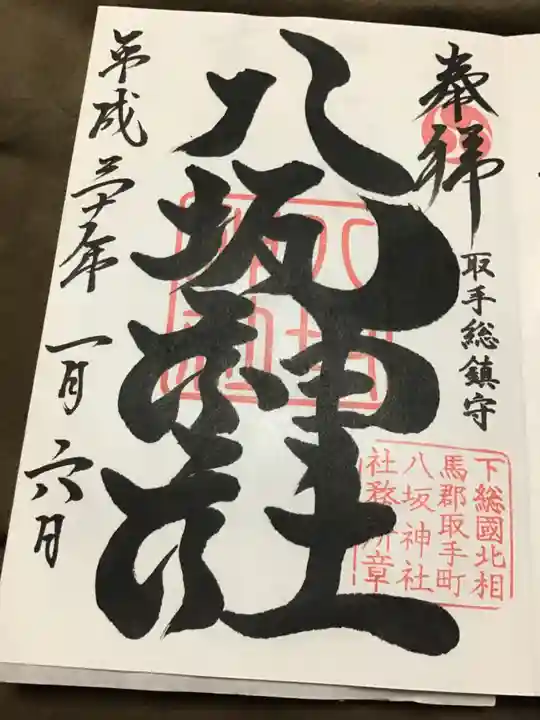 奉拝
取手総鎮守
下総國北相
馬郡取手町
八坂神社
社務所章
八坂神社
平成三十年一月六日